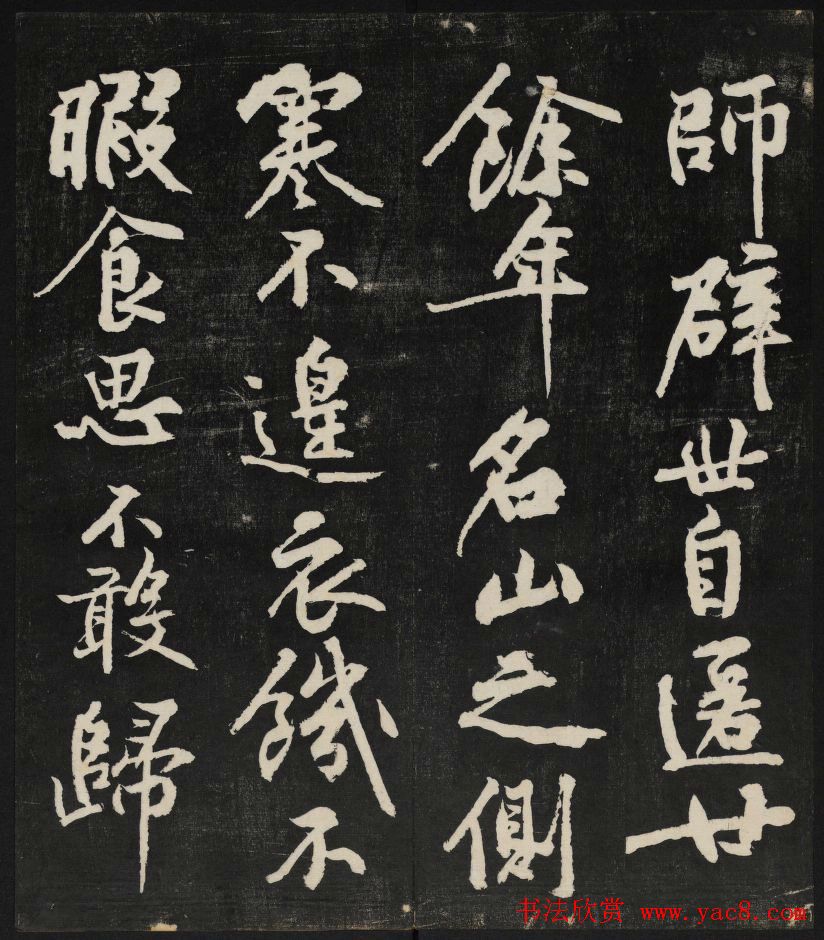 師辟世自遯廿
餘年名山之側
寒不遑衣饑不
暇食思不敢歸
书法欣赏 www.yac8.com